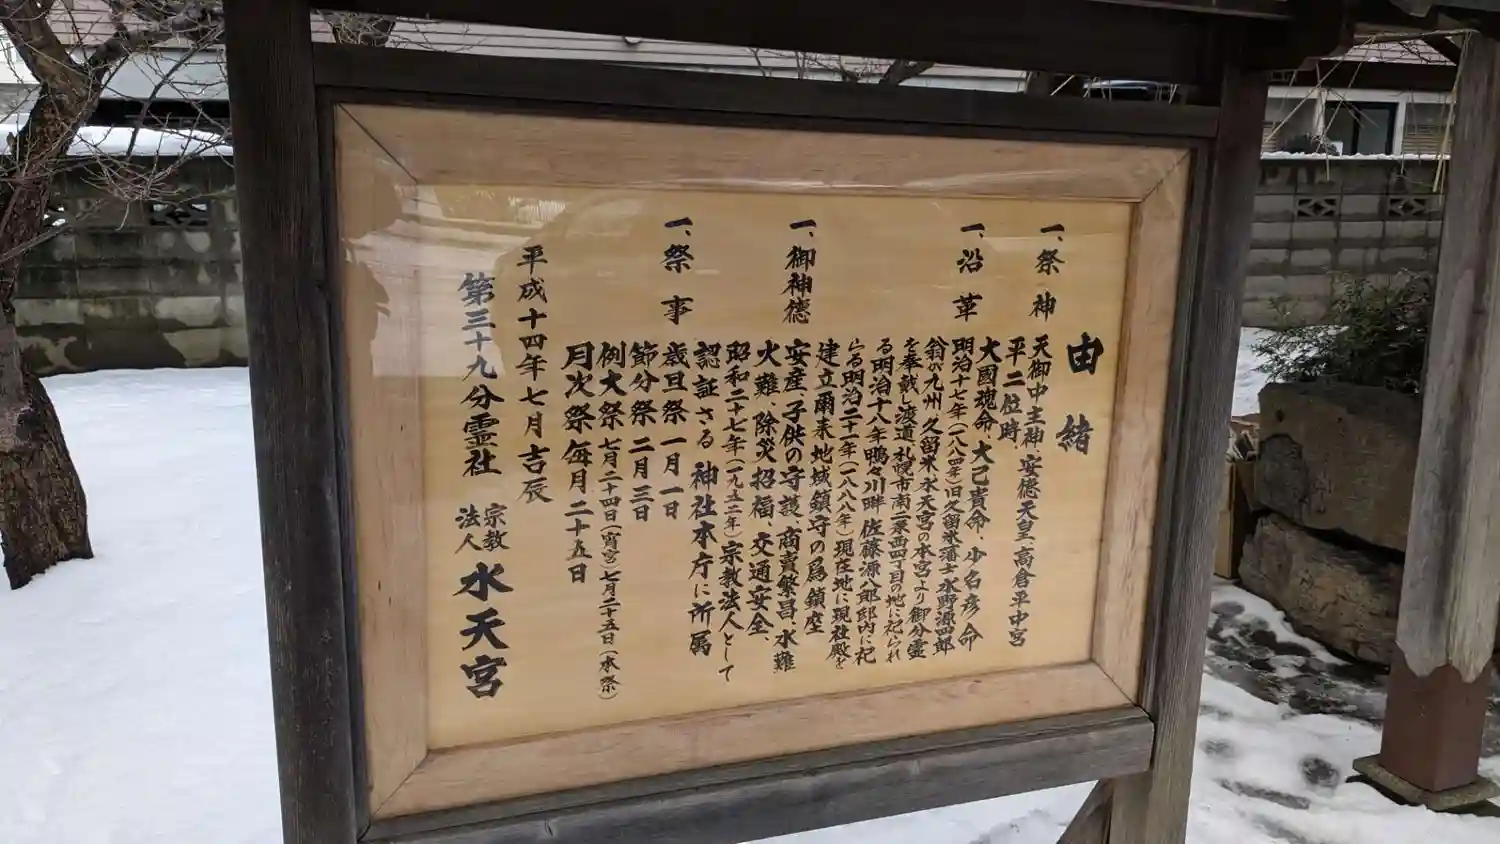 由緒
一、祭神 天御中主神、安徳天皇、高倉平中宮
平二位時、
大國魂命、大己貴命、少名彦命
一、沿革 明治十七年(一八八四年)旧久留米藩士水野源四郎
翁が九州、久留米、水天宮の本宮より御分霊
を奉戴し渡道、札幌市南二条西四丁目の地に祀られ
る明治十八年鴨々川畔佐藤源八郎邸内に祀
らる明治二十一年(一八八八年)現在地に現社殿を
建立爾来地域鎮守の為鎮座
一、御神徳 安産、子供の守護、商売繁昌、水難
火難、除災招福、交通安全、
昭和二十七年(一九五二年)宗教法人として
認証さる 神社本庁に所属
一、祭事 歳旦祭 一月一日
節分祭 二月三日
例大祭 七月二十四日(宵宮)七月二十五日(本祭)
月次祭 毎月二十五日
平成十四年七月吉辰
第三十九分霊社 宗教法人 水天宮